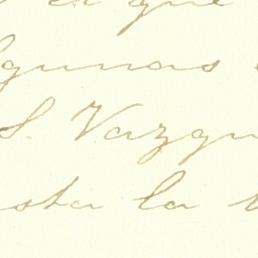 a que
lgunas
S. Vazqu
sta la